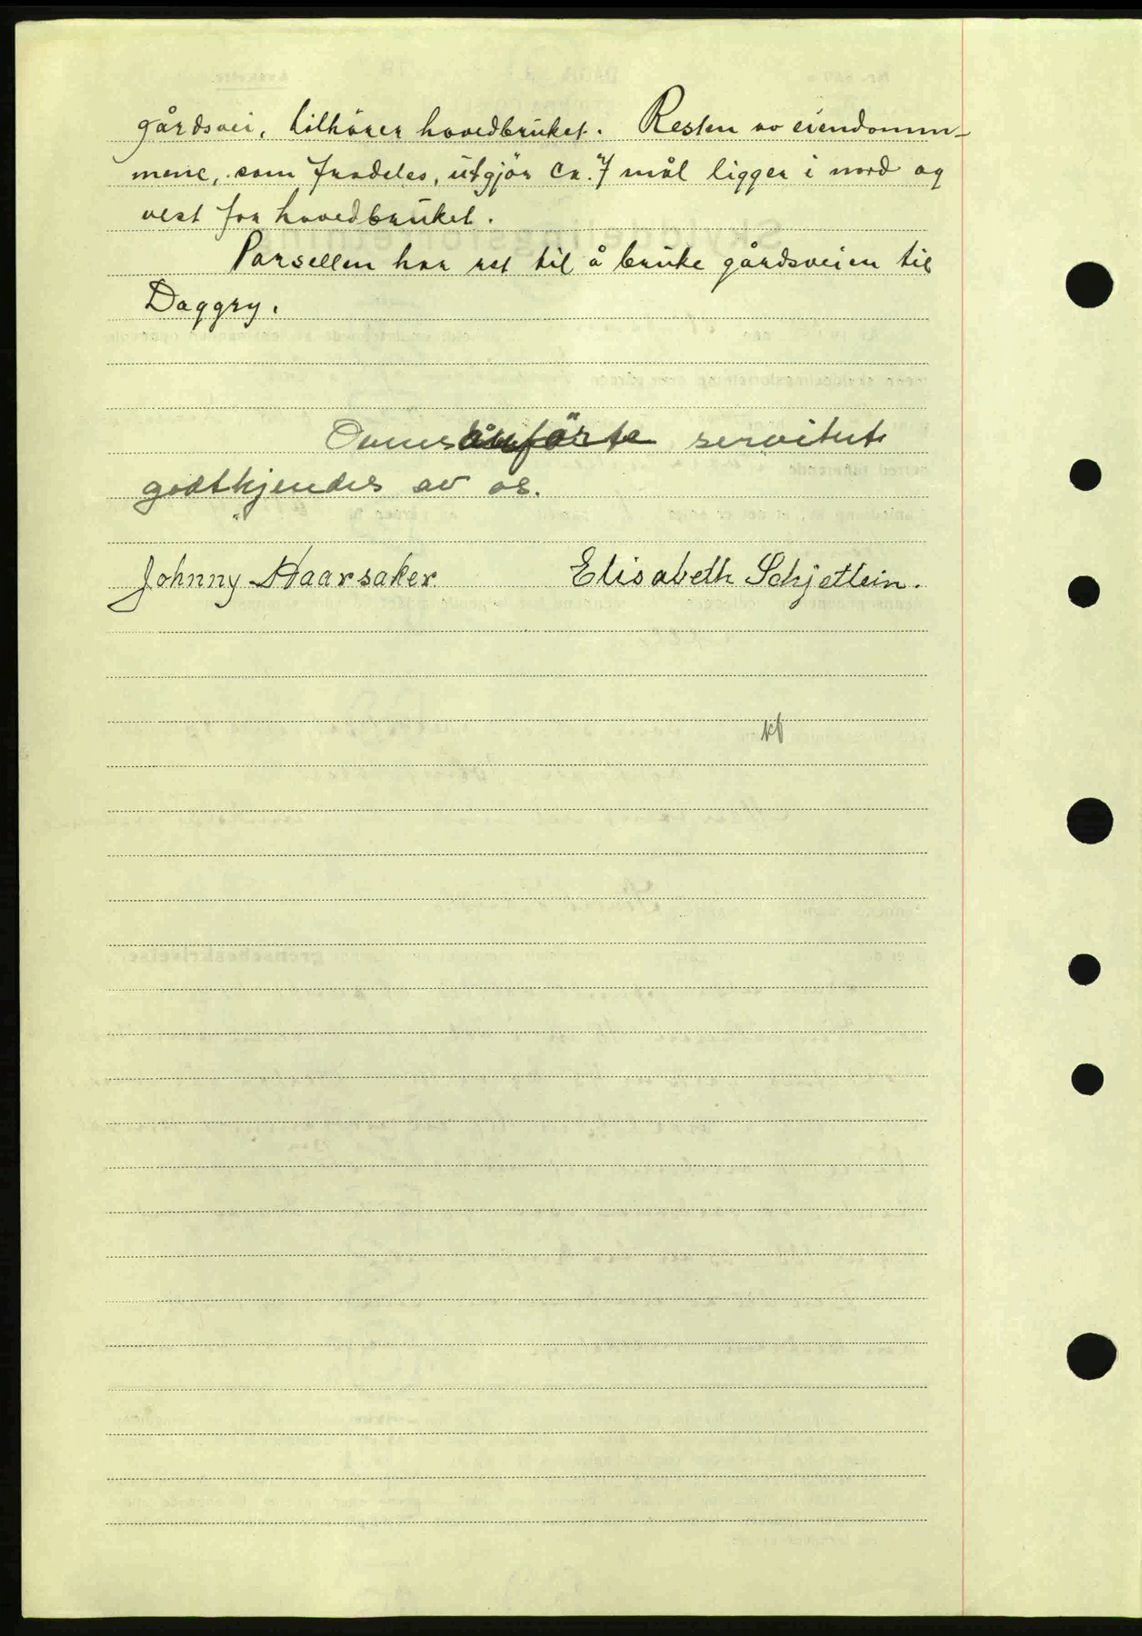 gårdsvei, tilhörer hovedbruket. Resten av eiendomm-
mene, som fradeles, utgjör ca. 7 mål ligger i nord og
vest for hovedbruket.
Parsellen har ret til å bruke gårdsveien til
Daggry.
Ovenanförte servitut
godtkjendes av os.
Johnny Haarsaker Elisabeth Schjetlein.